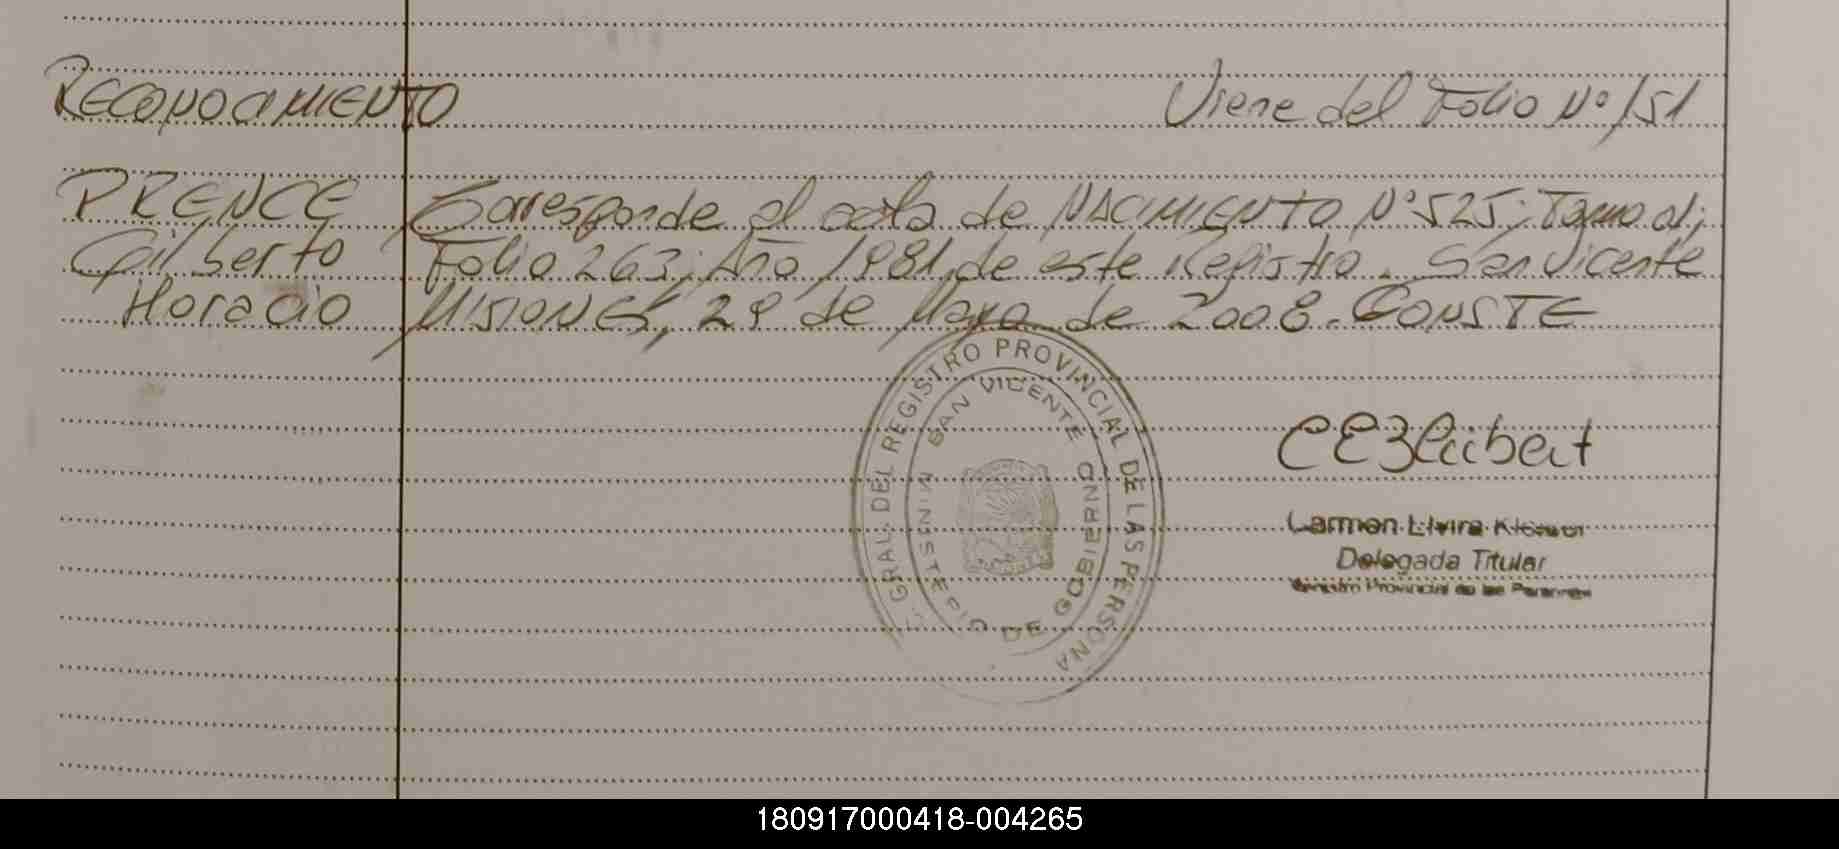 RECONOCIMIENTO
Viene del Folio Nº 151
PRENCE
Gilberto
Horacio
Corresponde al acta de NACIMIENTO Nº 525; Tomo
Folio 263; Año 1981, de este Registro. San Vicente
MISIONES, 29 de Mayo de 2008. CONSTE
GRAL. DEL REGISTRO PROVINCIAL DE LAS PERSONA
SAN VICENTE
MINISTERIO DE GOBIERNO
Carmen Elvira
Delegada Titular
Registro Provincial de las Personas
180917000418-004265